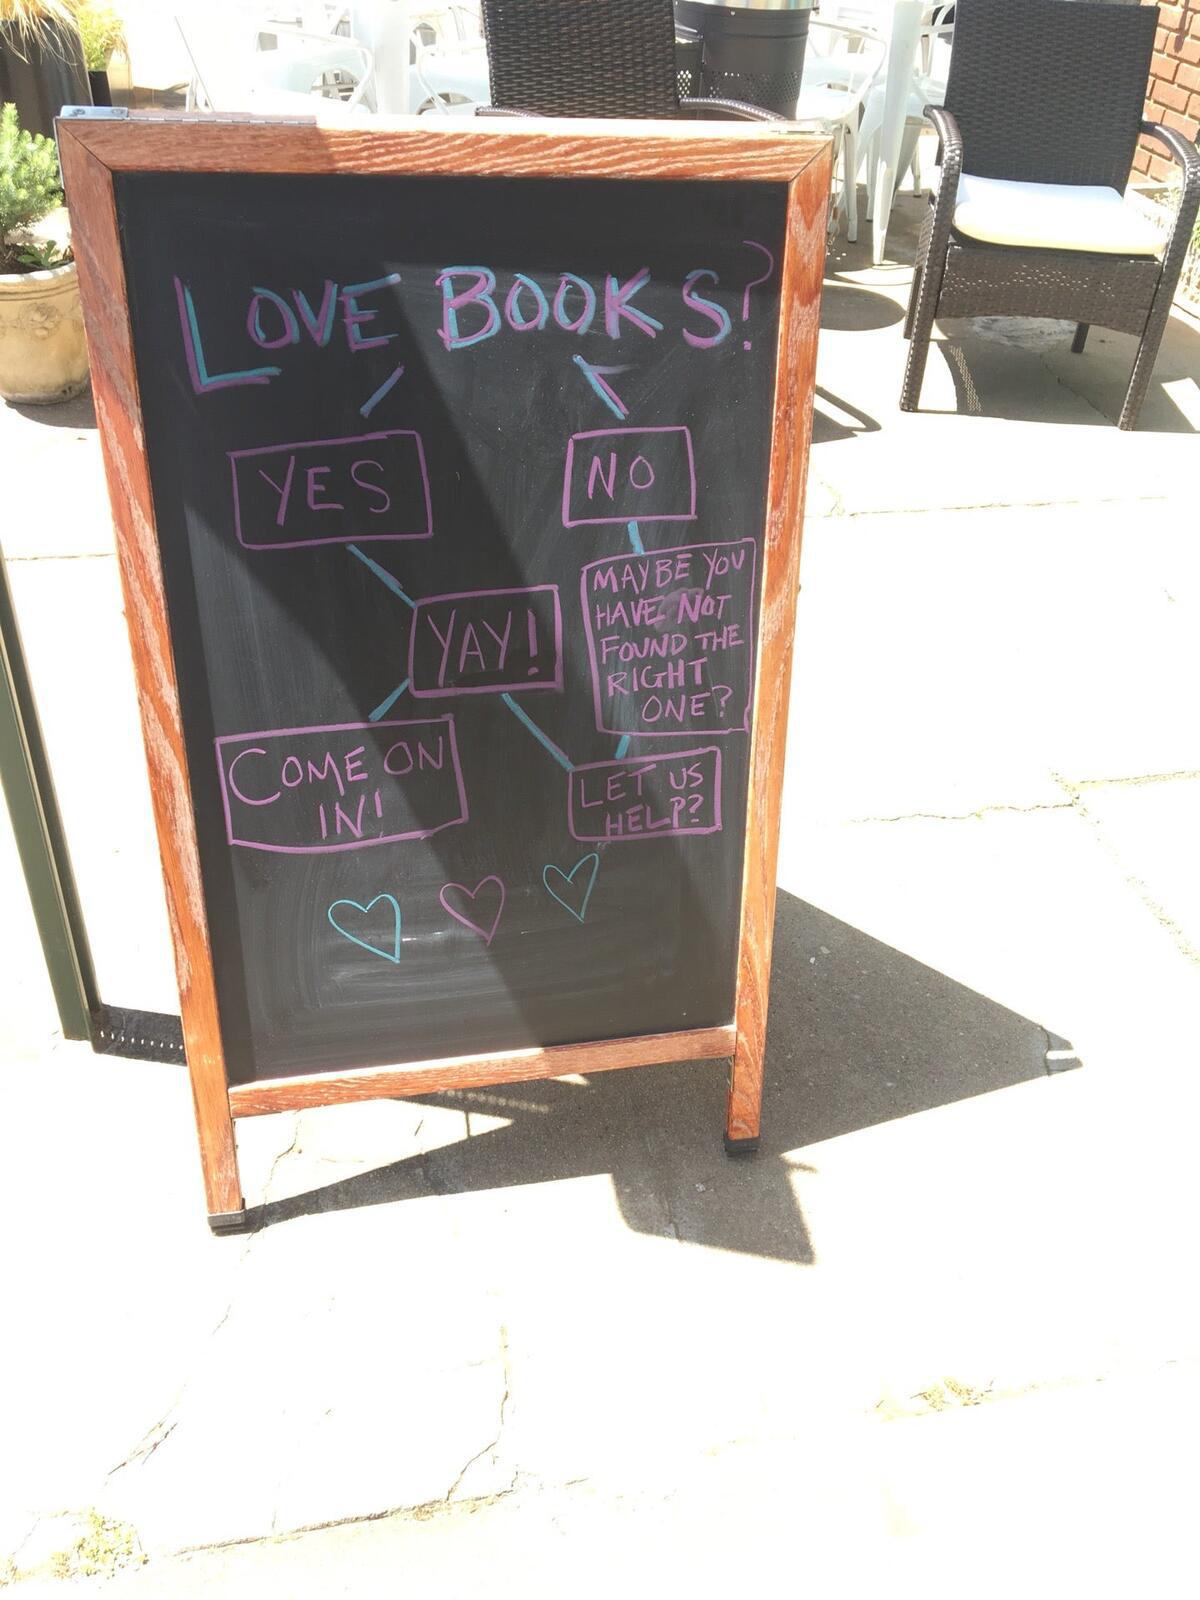 LOVE BOOKS?
YES
NO
MAYBE YOU
HAVE NOT
FOUND THE
RIGHT
ONE?
YAY!
COME ON
IN!
LET US
HELP?